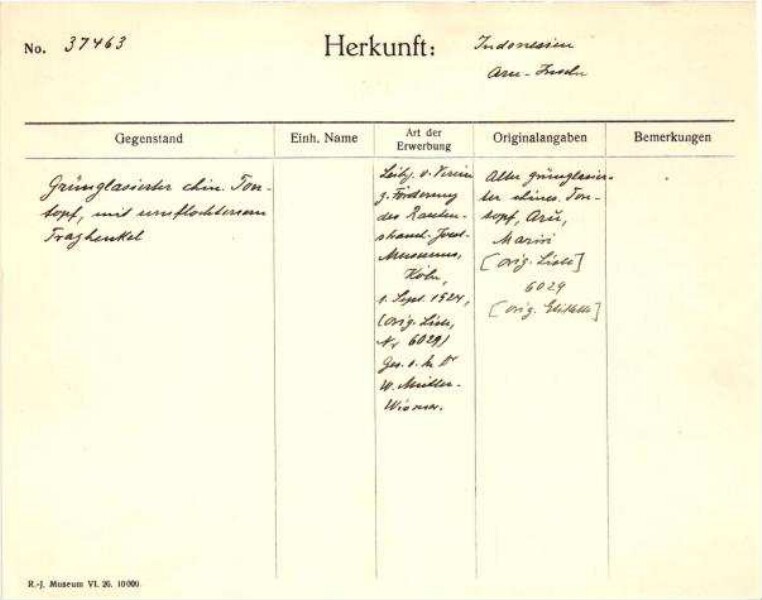 No. 37463
Herkunft:
Indonesien
Aru-Inseln
Gegenstand
Einh. Name
Art der
Erwerbung
Originalangaben
Bemerkungen
Grünglasierter chin. Ton-
topf, mit umflochtenem
Traghenkel
Leihg. v. Verein
z. Förderung
des Rauten-
strauch-Joest-
Museums,
Köln,
1. Sept. 1924,
(orig. Liste,
Nr 6029)
Ges. v. h. Dr
W. Müller-
Wismar.
Alter grünglasier-
ter chines. Ton-
topf, Aru,
[orig. Liste]
6029
[orig. Etikette]
R.-J. Museum VI. 26. 10000.